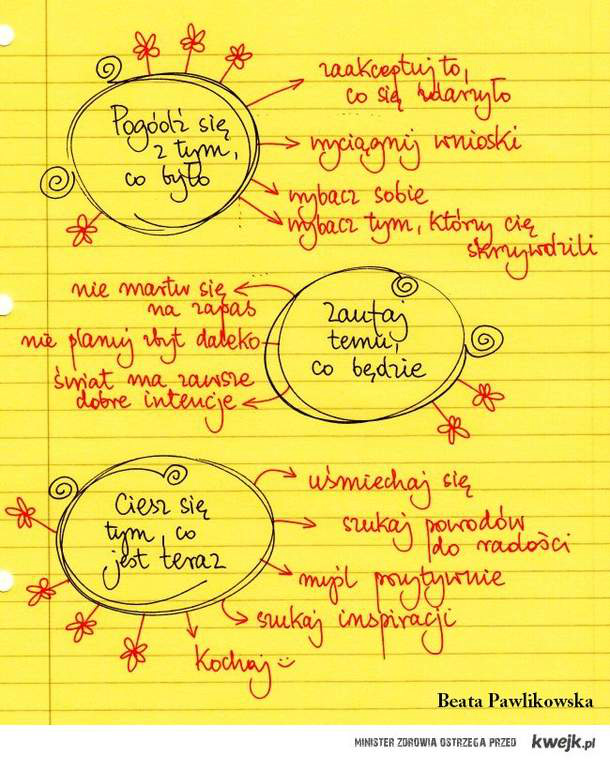 Pogódź się
z tym,
co było
zaakceptuj to,
co się zdarzyło
wyciągnij wnioski
wybacz sobie
wybacz tym, którzy cię
skrzywdzili
Zaufaj
temu,
co będzie
nie martw się
na zapas
nie planuj zbyt daleko
świat ma zawsze
dobre intencje
Ciesz się
tym, co
jest teraz
uśmiechaj się
szukaj powodów
do radości
myśl pozytywnie
szukaj inspiracji
Kochaj :)
Beata Pawlikowska
MINISTER ZDROWIA OSTRZEGA PRZED kwejk.pl